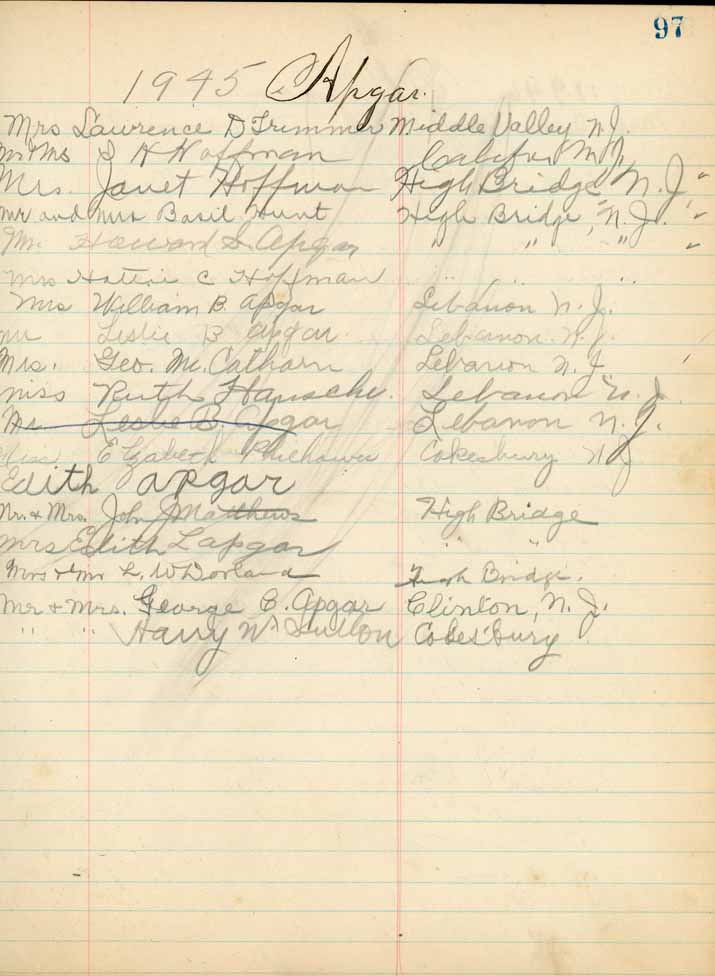 97
1945 Apgar.
Mrs Lawrence D Trimmer Middle Valley N.J.
Mr & Mrs S H Hoffman Califon N.J.
Mrs. Janet Hoffman High Bridge N.J.
Mr. and Mrs Basil Hunt High Bridge, N.J.
Mr. Howard S. Apgar " " "
Mrs Hattie C Hoffman " " "
Mrs William B. Apgar Lebanon N.J.
Mr Leslie B Apgar Lebanon. N.J.
Mrs. Geo. Mc. Catharn Lebanon N.J.
Miss Ruth Lebanon N.J.
Leslie B. Apgar Lebanon N.J.
Miss Elizabeth Cokesbury N J
Edith apgar
Mr. & Mrs. John J Matthews High Bridge
Mrs Edith L apgar " "
Mrs & Mr L. W Dorland High Bridge.
Mr & Mrs. George C. Apgar Clinton, N.J.
" " Harry W. Sutton Cokesbury